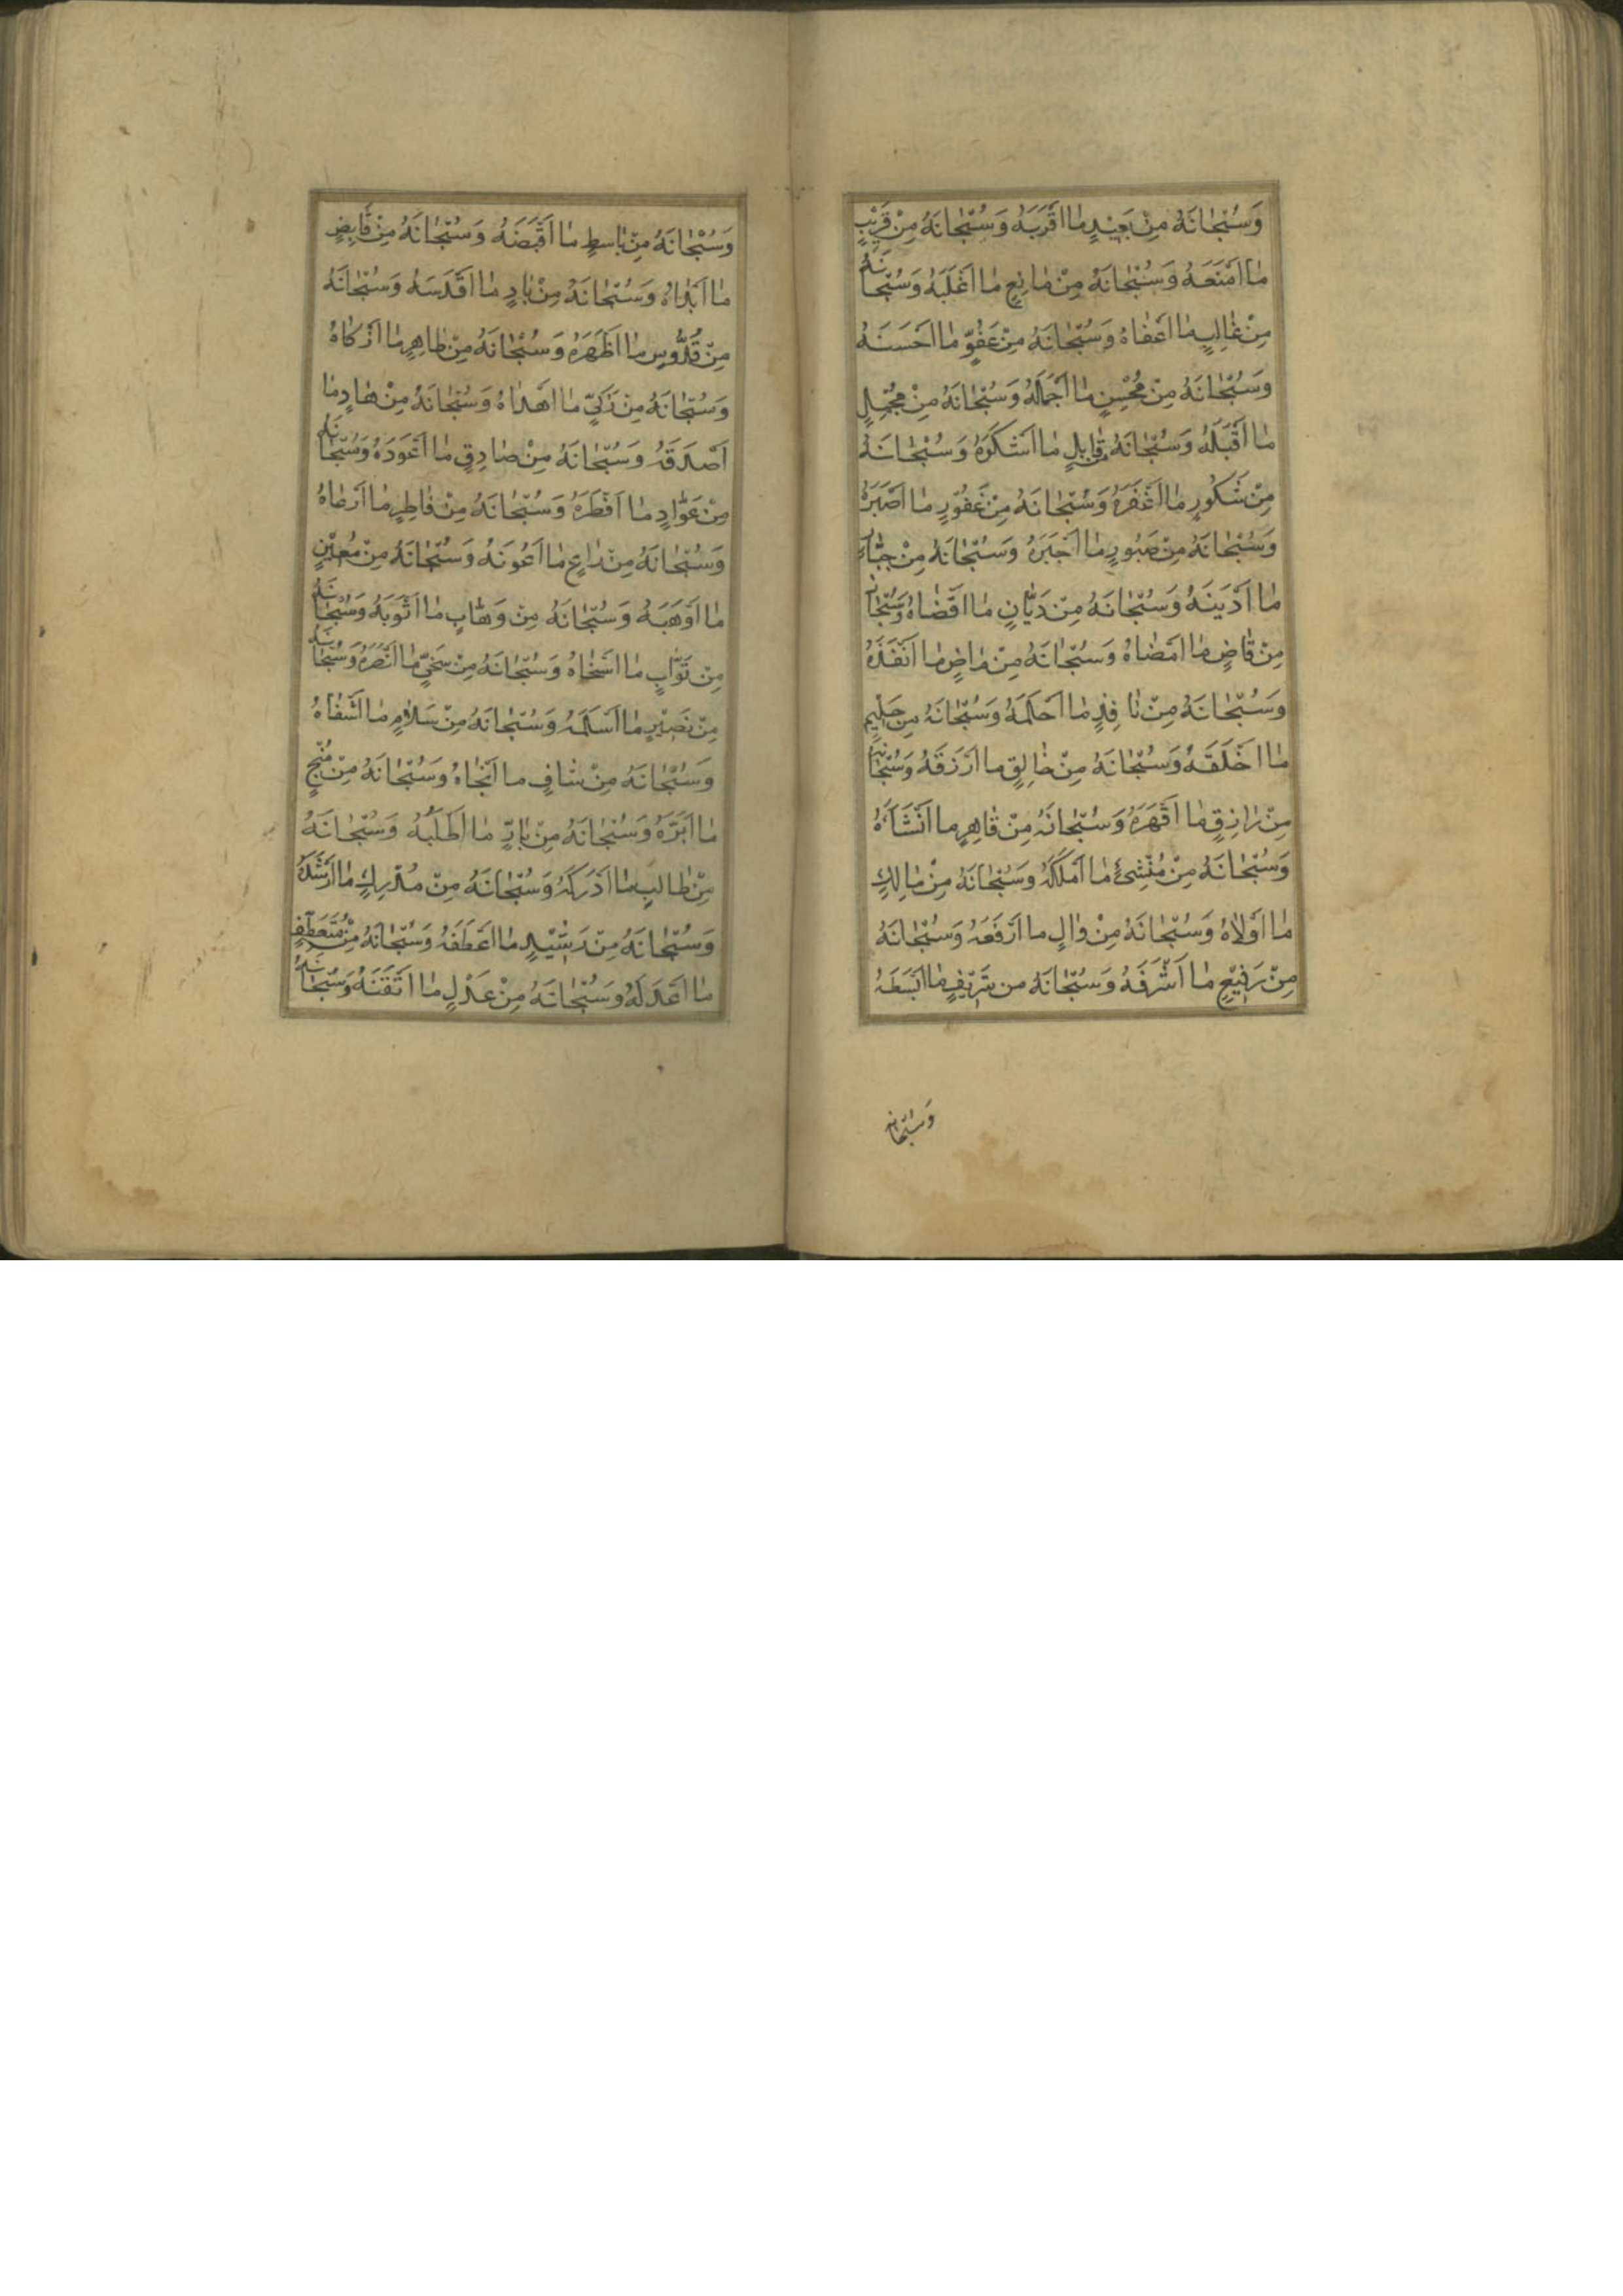 وَسُبْحٰانَهُ مِنْ بَعِيْدٍ مٰا اَقْرَبَهُ وَسُبْحٰانَهُ مِنْ قَرِيْبٍ
مٰا اَمْنَعَهُ وَسُبْحٰانَهُ مِنْ مٰانِعٍ مٰا اَغْلَبَهُ وَسُبْحٰانَهُ
مِنْ غٰالِبٍ مٰا اَعْفٰاهُ وَسُبْحٰانَهُ مِنْ عَفُوٍّ مٰا اَحْسَنَهُ
وَسُبْحٰانَهُ مِنْ مُحْسِنٍ مٰا اَجْمَلَهُ وَسُبْحٰانَهُ مِنْ مُجْمِلٍ
مٰا اَقْبَلَهُ وَسُبْحٰانَهُ مِنْ قٰابِلٍ مٰا اَشْكَرَهُ وَسُبْحٰانَهُ
مِنْ شَكُورٍ مٰا اَغْفَرَهُ وَسُبْحٰانَهُ مِنْ غَفُوْرٍ مٰا اَصْبَرَهُ
وَسُبْحٰانَهُ مِنْ صَبُورٍ مٰا اَجْبَرَهُ وَسُبْحٰانَهُ مِنْ جَبّٰارٍ
مٰا اَدْيَنَهُ وَسُبْحٰانَهُ مِنْ دَيّٰانٍ مٰا اَقْضٰاهُ وَسُبْحٰانَهُ
مِنْ قٰاضٍ مٰا اَمْضٰاهُ وَسُبْحٰانَهُ مِنْ مٰاضٍ مٰا اَنْفَذَهُ
وَسُبْحٰانَهُ مِنْ نٰافِذٍ مٰا اَحْلَمَهُ وَسُبْحٰانَهُ مِنْ حَلِيْمٍ
مٰا اَخْلَقَهُ وَسُبْحٰانَهُ مِنْ خٰالِقٍ مٰا اَرْزَقَهُ وَسُبْحٰانَهُ
مِنْ رٰازِقٍ مٰا اَقْهَرَهُ وَسُبْحٰانَهُ مِنْ قٰاهِرٍ مٰا اَنْشَأَهُ
وَسُبْحٰانَهُ مِنْ مُنْشِئٍ مٰا اَمْلَكَهُ وَسُبْحٰانَهُ مِنْ مٰالِكٍ
مٰا اَوْلاٰهُ وَسُبْحٰانَهُ مِنْ وٰالٍ مٰا اَرْفَعَهُ وَسُبْحٰانَهُ
مِنْ رَفِيْعٍ مٰا اَشْرَفَهُ وَسُبْحٰانَهُ مِن شَرِيْفٍ مٰا اَبْسَطَهُ
وَسُبْحٰانَهُ
وَسُبْحٰانَهُ مِنْ بٰاسِطٍ مٰا اَقْبَضَهُ وَسُبْحٰانَهُ مِنْ قٰابِضٍ
مٰا اَبْدٰاهُ وَسُبْحٰانَهُ مِنْ بٰادٍ مٰا اَقْدَسَهُ وَسُبْحٰانَهُ
مِنْ قُدُّوسٍ مٰا اَطْهَرَهُ وَسُبْحٰانَهُ مِنْ طٰاهِرٍ مٰا اَزْكٰاهُ
وَسُبْحٰانَهُ مِنْ زَكِيٍّ مٰا اَهْدٰاهُ وَسُبْحٰانَهُ مِنْ هٰادٍ مٰا
اَصْدَقَهُ وَسُبْحٰانَهُ مِنْ صٰادِقٍ مٰا اَعْوَدَهُ وَسُبْحٰانَهُ
مِنْ عَوّٰادٍ مٰا اَفْطَرَهُ وَسُبْحٰانَهُ مِنْ فٰاطِرٍ مٰا اَرْعٰاهُ
وَسُبْحٰانَهُ مِنْ رٰاعٍ مٰا اَعْوَنَهُ وَسُبْحٰانَهُ مِنْ مُعِيْنٍ
مٰا اَوْهَبَهُ وَسُبْحٰانَهُ مِنْ وَهّٰابٍ مٰا اَتْوَبَهُ وَسُبْحٰانَهُ
مِنْ تَوّٰابٍ مٰا اَسْخٰاهُ وَسُبْحٰانَهُ مِنْ سَخِيٍّ مٰا اَنْصَرَهُ وَسُبْحٰانَهُ
مِنْ نَصِيْرٍ مٰا اَسْلَمَهُ وَسُبْحٰانَهُ مِنْ سَلاٰمٍ مٰا اَشْفٰاهُ
وَسُبْحٰانَهُ مِنْ شٰافٍ مٰا اَنْجٰاهُ وَسُبْحٰانَهُ مِنْ مُنْجٍ
مٰا اَبَرَّهُ وَسُبْحٰانَهُ مِنْ بٰارٍّ مٰا اَطْلَبَهُ وَسُبْحٰانَهُ
مِنْ طٰالِبٍ مٰا اَدْرَكَهُ وَسُبْحٰانَهُ مِنْ مُدْرِكٍ مٰا اَرْشَدَهُ
وَسُبْحٰانَهُ مِنْ رَشِيْدٍ مٰا اَعْطَفَهُ وَسُبْحٰانَهُ مِنْ مُتَعَطِّفٍ
مٰا اَعْدَلَهُ وَسُبْحٰانَهُ مِنْ عَدْلٍ مٰا اَتْقَنَهُ وَسُبْحٰانَهُ